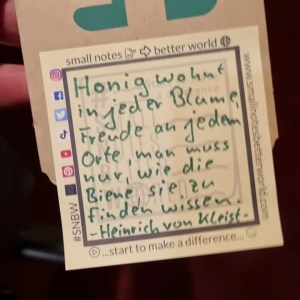 small notes ⇨ better world
Honig wohnt
in jeder Blume,
Freude an jedem
Orte, man muss
nur, wie die
Biene, sie zu
finden wissen.
- Heinrich von Kleist -
...start to make a difference...
#SNBW
www.smallnotesbetterworld.com